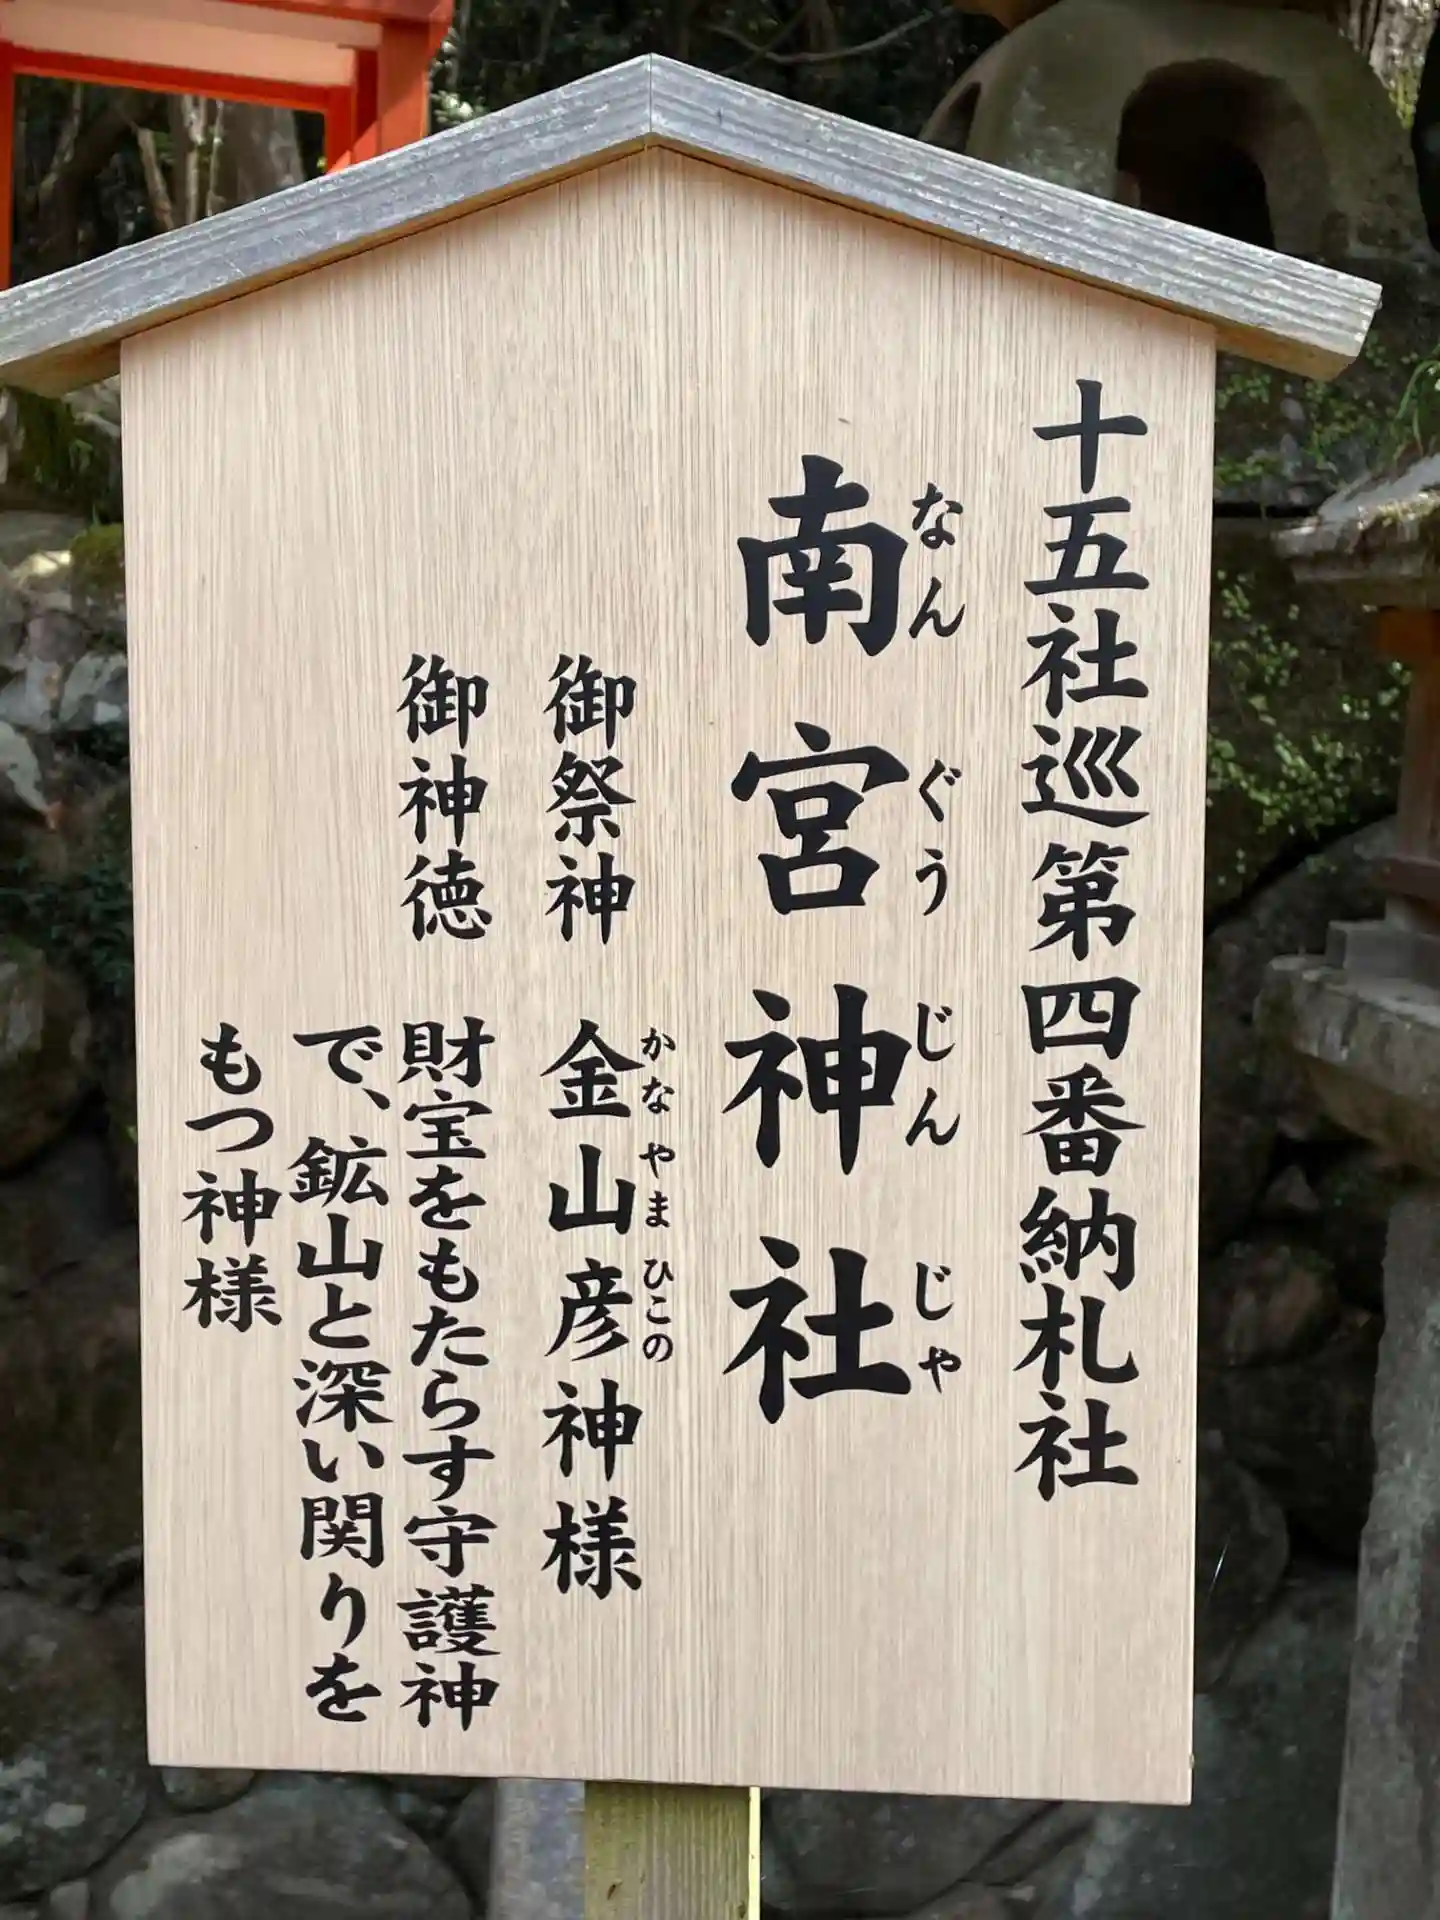 十五社巡第四番納札社
南宮神社
なんぐうじんじゃ
御祭神 金山彦神様
かなやまひこの
御神徳 財宝をもたらす守護神
で、鉱山と深い関りを
もつ神様